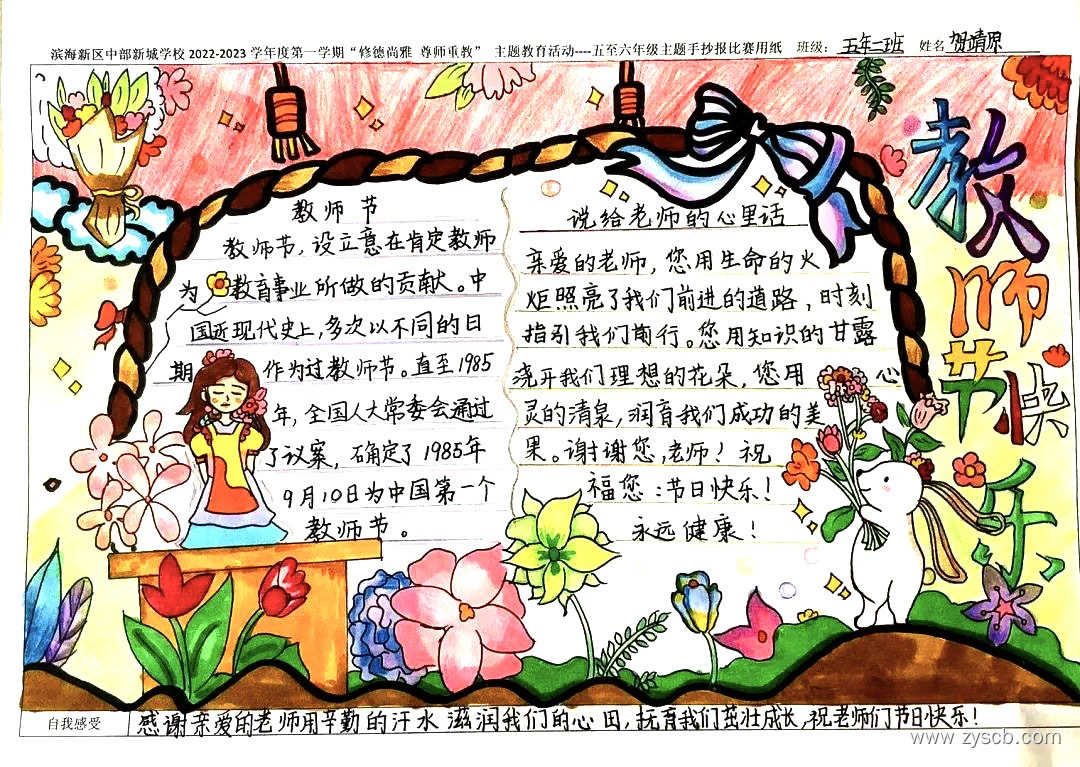 滨海新区中部新城学校 2022-2023 学年度第一学期“修德尚雅 尊师重教” 主题教育活动----五至六年级主题手抄报比赛用纸 班级：五年二班 姓名 贺靖原
教师节快乐
教师节
教师节，设立意在肯定教师
为教育事业所做的贡献。中
国近现代史上，多次以不同的日
期作为过教师节。直至1985
年，全国人大常委会通过
了议案，确定了1985年
9月10日为中国第一个
教师节。
说给老师的心里话
亲爱的老师，您用生命的火
炬照亮了我们前进的道路，时刻
指引我们前行。您用知识的甘露
浇开我们理想的花朵，您用心
灵的清泉，润育我们成功的美
果。谢谢您，老师！祝
福您：节日快乐！
永远健康！
自我感受 感谢亲爱的老师用辛勤的汗水滋润我们的心田，抚育我们茁壮成长，祝老师们节日快乐！
www.zyscb.com